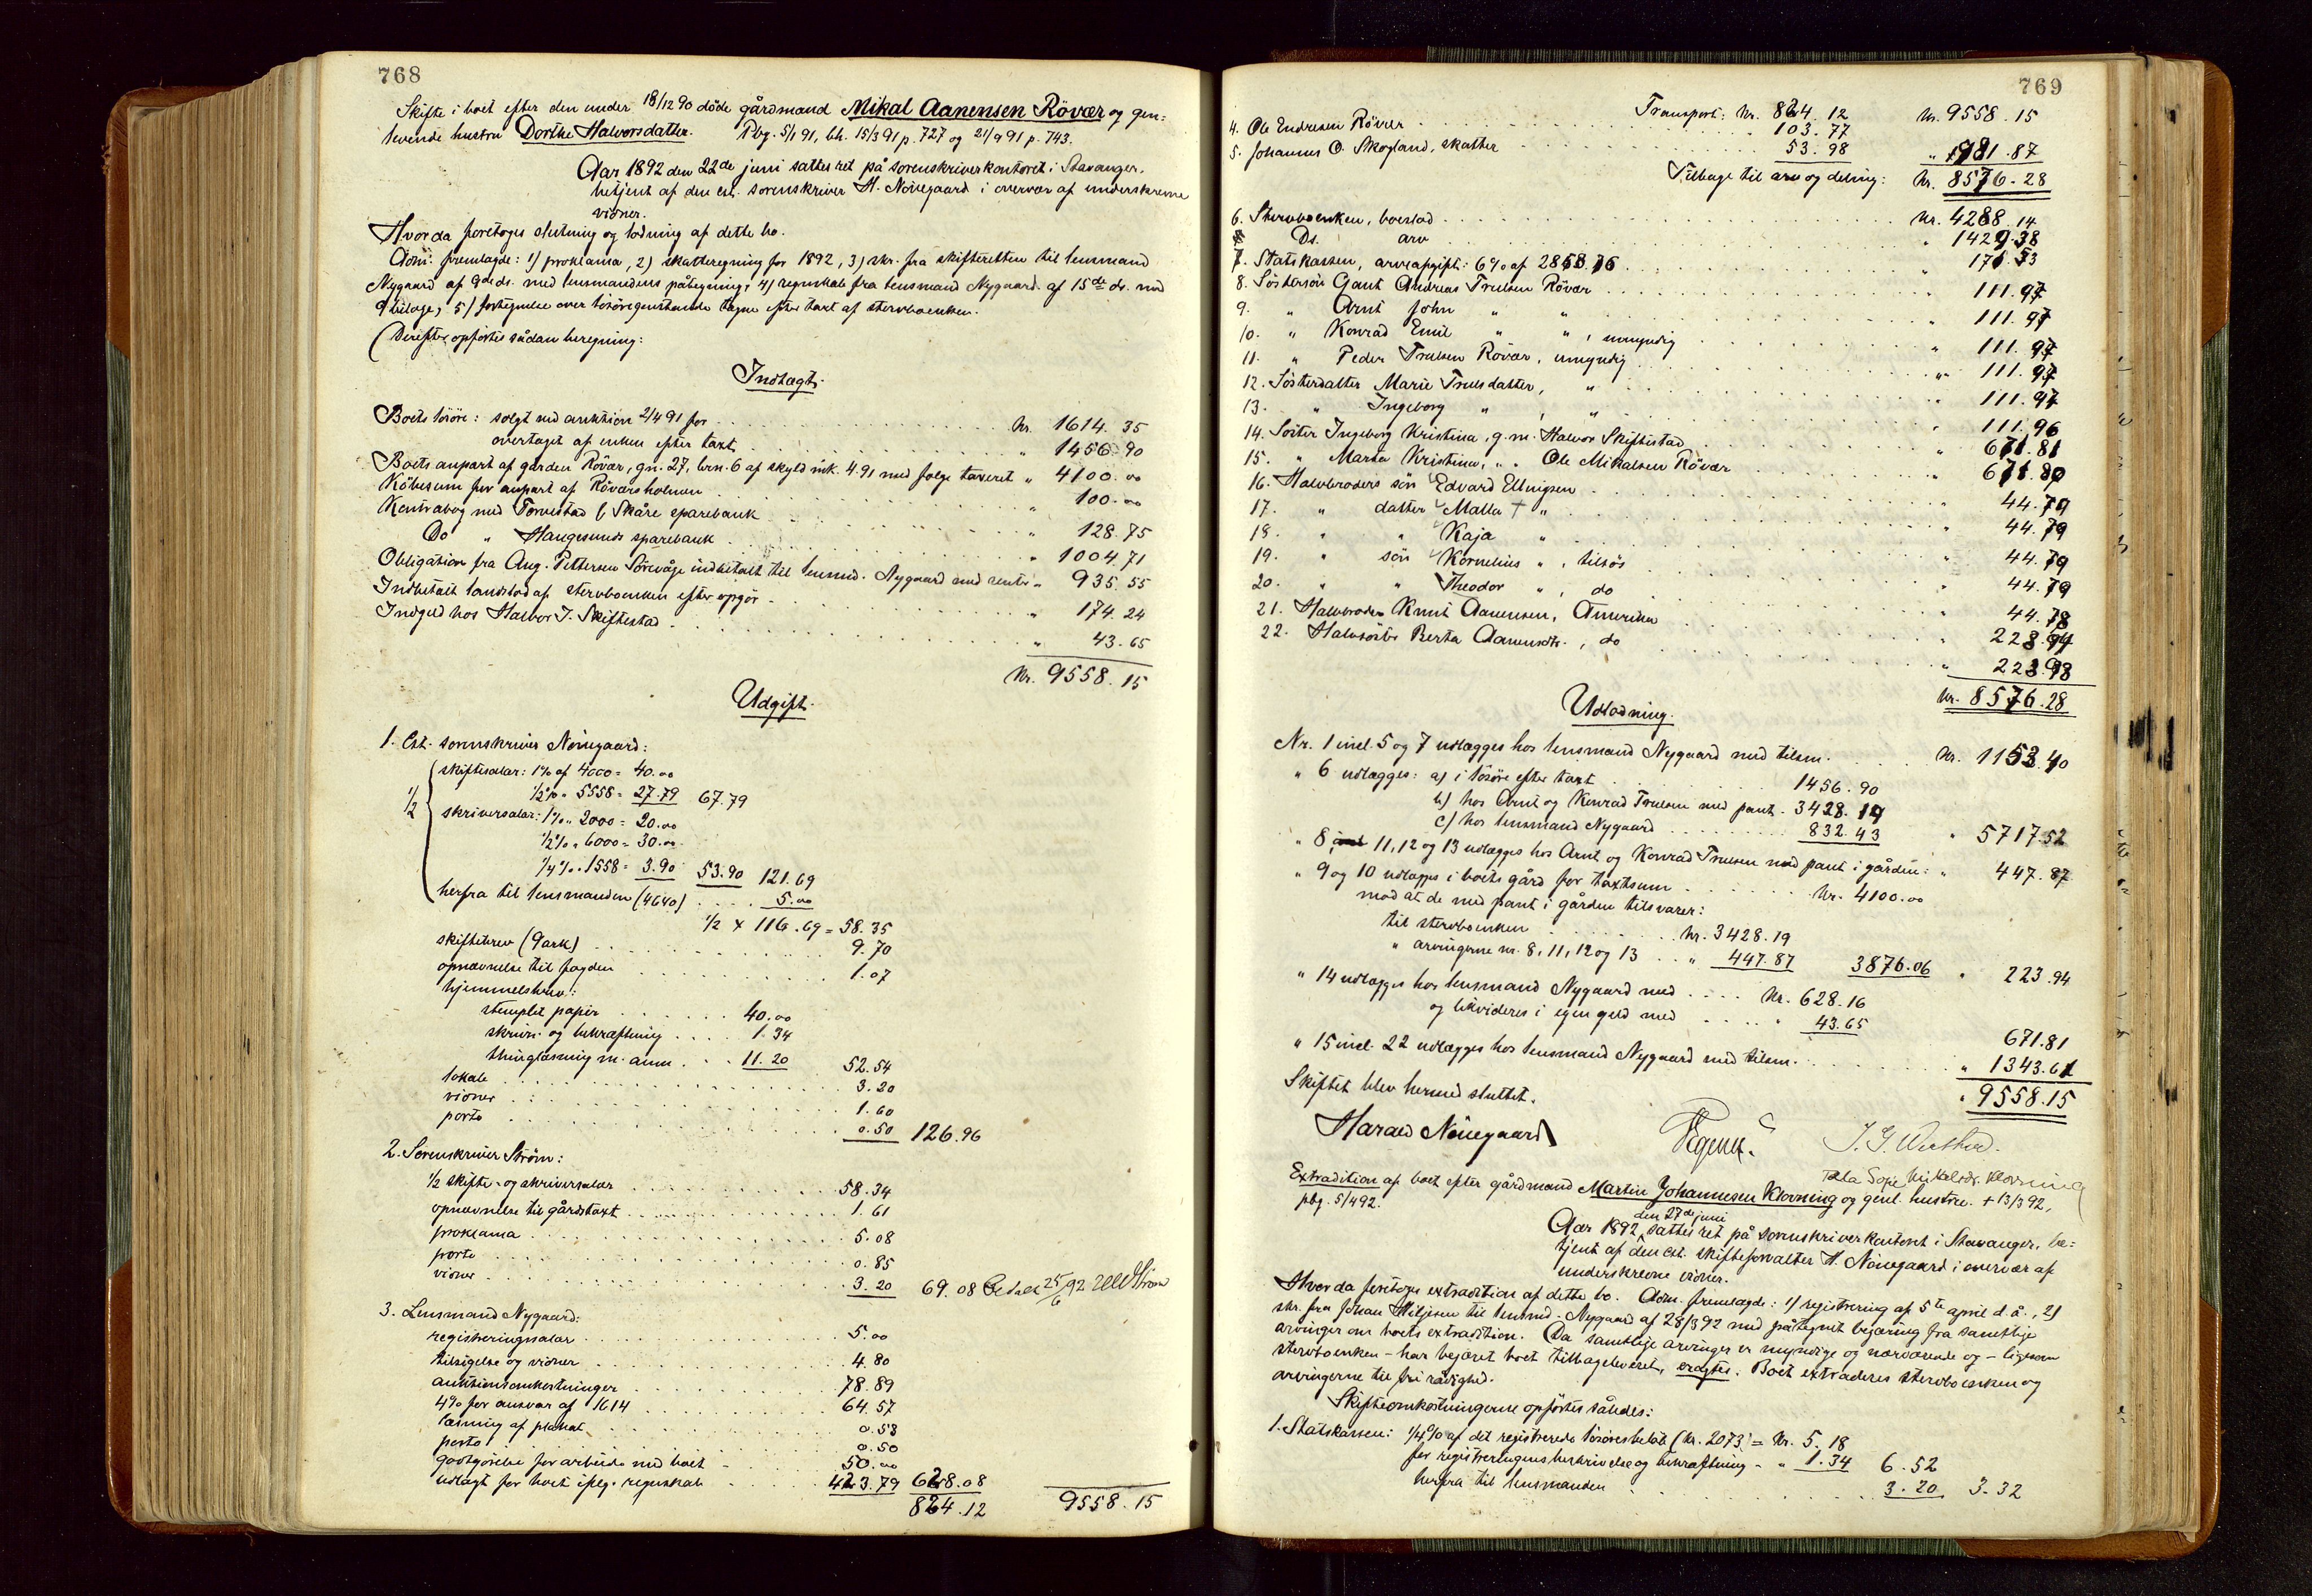 768
Skifte i boet efter den under 18/12 90 döde gårdmand Mikal Aanensen Rövær og gen-
levende hustru Dorthe Halvorsdatter. Pbg. 5/1 91, bh. 15/3 91 p. 727 og 21/9 91 p. 743.
Aar 1892 den 22de juni sattes ret på sorenskriverkontoret i Stavanger,
betjent af den cst. sorenskriver H. Nörregaard i overvær af underskrevne
vidner.
Hvorda foretoges slutning og lodning af dette bo.
Adm. fremlagde: 1) proklama, 2) skatteregning for 1892, 3) skr. fra skifteretten til lensmand
Nygaard af 9de ds. med lensmandens påtegning, 4) regnskab fra lensmand Nygaard af 15de ds. med
9 bilage, 5) fortegnelse over lösöregjenstande tagne efter taxt af stervboenken.
Derefter opförtes sådan beregning:
Indtægt.
Boets lösöre: solgt ved auktion 2/4 91 for Kr. 1614.35
overtaget af enken efter taxt " 1456.90
Boets anpart af gården Rövær, gn. 27, brn. 6 af skyld mk. 4.91 med fölge taxeret " 4100.00
Köbesum for anpart af Röværsholmen " 100.00
Kontrabog med Torvestad & Skåre sparebank " 128.75
Do " Haugesunds sparebank " 1004.71
Obligation fra Aug. Pettersen Sörevåge indbetalt til lensmd. Nygaard med renter " 935.55
Indbetalt landslod af stervboenken efter opgör " 174.24
Indgeld hos Halvor J. Skiftestad " 43.65
Kr. 9558.15
Udgift.
1. Cst. sorenskriver Nörregaard:
1/2 skiftesalær: 1% af 4000 = 40.00
1/2% " 5558 = 27.79 67.79
skriversalær: 1% " 2000 = 20.00
1/2% " 6000 = 30.00
1/4% " 1558 = 3.90 53.90 121.69
herfra til lensmanden (4640) 5.00
1/2 x 116.69 = 58.35
skiftebrev (9 ark) 9.70
opnævnelse til fogden 1.07
hjemmelsbrev:
stemplet papir 40.00
skrivn. og bekræftning 1.34
thinglæsning m. anm. 11.20 52.54
lokale 3.20
vidner 1.60
porto 0.50 126.96
2. Sorenskriver Ström:
1/2 skifte- og skriversalær 58.34
opnævnelse til gårdstaxt 1.61
proklama 5.08
porto 0.85
vidner 3.20 69.08 Betalt 25/6 92
3. Lensmand Nygaard:
registreringssalær 5.00
tilsigelse og vidner 4.80
auktionsomkostninger 78.89
4% for ansvar af 1614 64.57
læsning af plakat 0.53
porto 0.50
godtgörelse for arbeide med boet 50.00
udlagt for boet ifölge regnskab 423.79 628.08
824.12 9558.15
769
Transport: Kr. 824.12 Kr. 9558.15
4. Ole Endresen Rövær " 103.77
5. Johannes O. Skogland, skatter 53.98 " 981.87
Tilbage til arv og deling: Kr. 8576.28
6. Stervboenken, boeslod Kr. 4288.14
Ds. arv " 1429.38
7. Statskassen, arveafgift: 6% af 2858.76 " 171.53
8. Söstersön Gaut Andreas Truelsen Rövær 111.97
9. " Arnt John " " " 111.97
10. " Konrad Emil " " , umyndig " 111.97
11. " Peder Truelsen Rövær, umyndig " 111.97
12. Sösterdatter Marie Truelsdatter, " " 111.97
13. " Ingeborg " , " " 111.96
14. Söster Ingeborg Kristina, g. m. Halvor Skiftestad " 671.81
15. " Marta Kristina, " " Ole Mikalsen Rövær " 671.80
16. Halvbroders sön Edvard Ellingsen 44.79
17. " datter Malla † " 44.79
18. " " Kaja " 44.79
19. " sön Kornelius " , tilsös 44.79
20. " " Theodor " , do 44.78
21. Halvbroder Knut Aanensen, Amerika " 223.94
22. Halvsöster Berta Aanensdtr., do " 223.98
Kr. 8576.28
Udlodning.
Nr. 1 incl. 5 og 7 udlægges hos lensmand Nygaard med tilsm. Kr. 1153.40
" 6 udlægges: a) i lösöre efter taxt 1456.90
b) hos Arnt og Konrad Truelsen med pant 3428.19
c) hos lensmand Nygaard 832.43 " 5717.52
" 8, 11, 12 og 13 udlægges hos Arnt og Konrad Truelsen med pant i gården: " 447.87
" 9 og 10 udlægges i boets gård for taxtsum Kr. 4100.00
mod at de med pant i gården tilsvarer:
til stervboenken Kr. 3428.19
" arvingerne nr. 8, 11, 12 og 13 " 447.87 3876.06 " 223.94
" 14 udlægges hos lensmand Nygaard med Kr. 628.16
og likvideres i egen geld med " 43.65 671.81
" 15 incl. 22 udlægges hos lensmand Nygaard med tilsm. " 1343.61
" 9558.15
Skiftet blev hermed sluttet.
Harald Nörregaard
Extradition af boet efter gårdmand Martin Johannesen Klovning og genl. hustru Sofie Mikalsdr. Klovning † 13/3 92,
pbg. 5/4 92.
Aar 1892 den 27de juni sattes ret på sorenskriverkontoret i Stavanger, be-
tjent af den cst. skifteforvalter H. Nörregaard i overvær af
underskrevne vidner.
Hvorda foretoges extradition af dette bo. Adm. fremlagde: 1) registrering af 5te april d. å., 2)
skr. fra Johan Miljesen til lensmd. Nygaard af 28/3 92 med påtegnet begæring fra samtlige
arvinger om boets extradition. Da samtlige arvinger er myndige og nærværende og – ligesom
stervboenken – har begæret boet tilbageleveret, eragtes: Boet extraderes stervboenken og
arvingerne til fri rådighed.
Skifteomkostningerne opförtes således:
1. Statskassen: 1/4% af det registrerede lösörebelöb (kr. 2073) = Kr. 5.18
for registreringens beskrivelse og bekræftning " 1.34 6.52
herfra til lensmanden 3.20 3.32